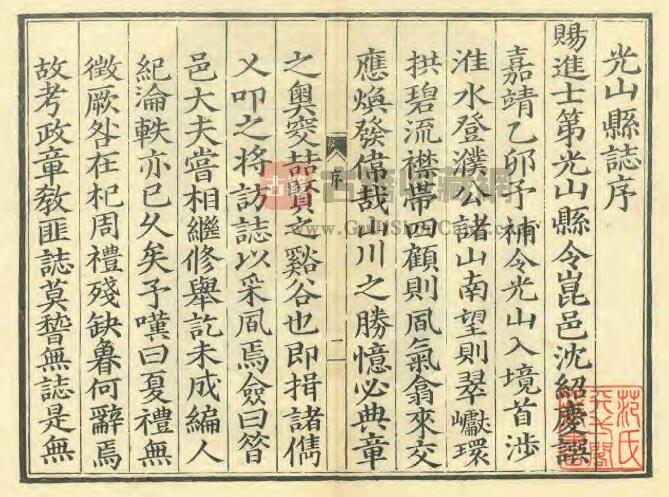 光山縣誌序
賜進士第光山縣令崑邑沈紹慶譔
嘉靖乙卯予補令光山入境首涉
淮水登濮公諸山南望則翠巘環
拱碧流襟帶四顧則風氣翕來交
應煥發偉哉川之勝憶必典章
序
二
之奧窔喆賢之谿谷也即揖諸儁
乂叩之將訪誌以采風焉僉曰答
邑大夫嘗相繼修舉訖未成編人
紀淪軼亦已久矣予嘆曰夏禮無
徵厥咎在杞周禮殘缺魯何辭焉
故考政章教匪誌莫稽無誌是無
范氏天一閣
www.GuJiShuCang.com